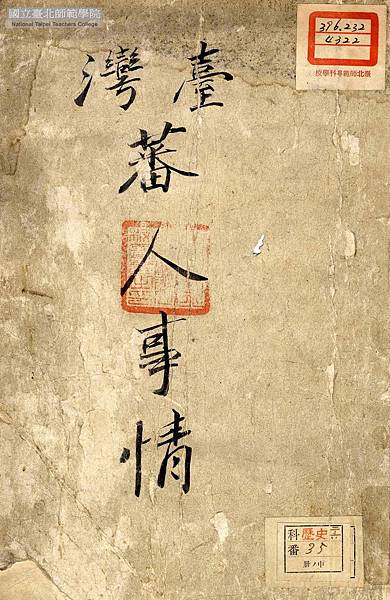 國立臺北師範學院
National Taipei Teachers College
396.232
4322
臺北師範專科學校
臺灣
蕃
人
事
情
科 歷史
番 35
冊ノ中